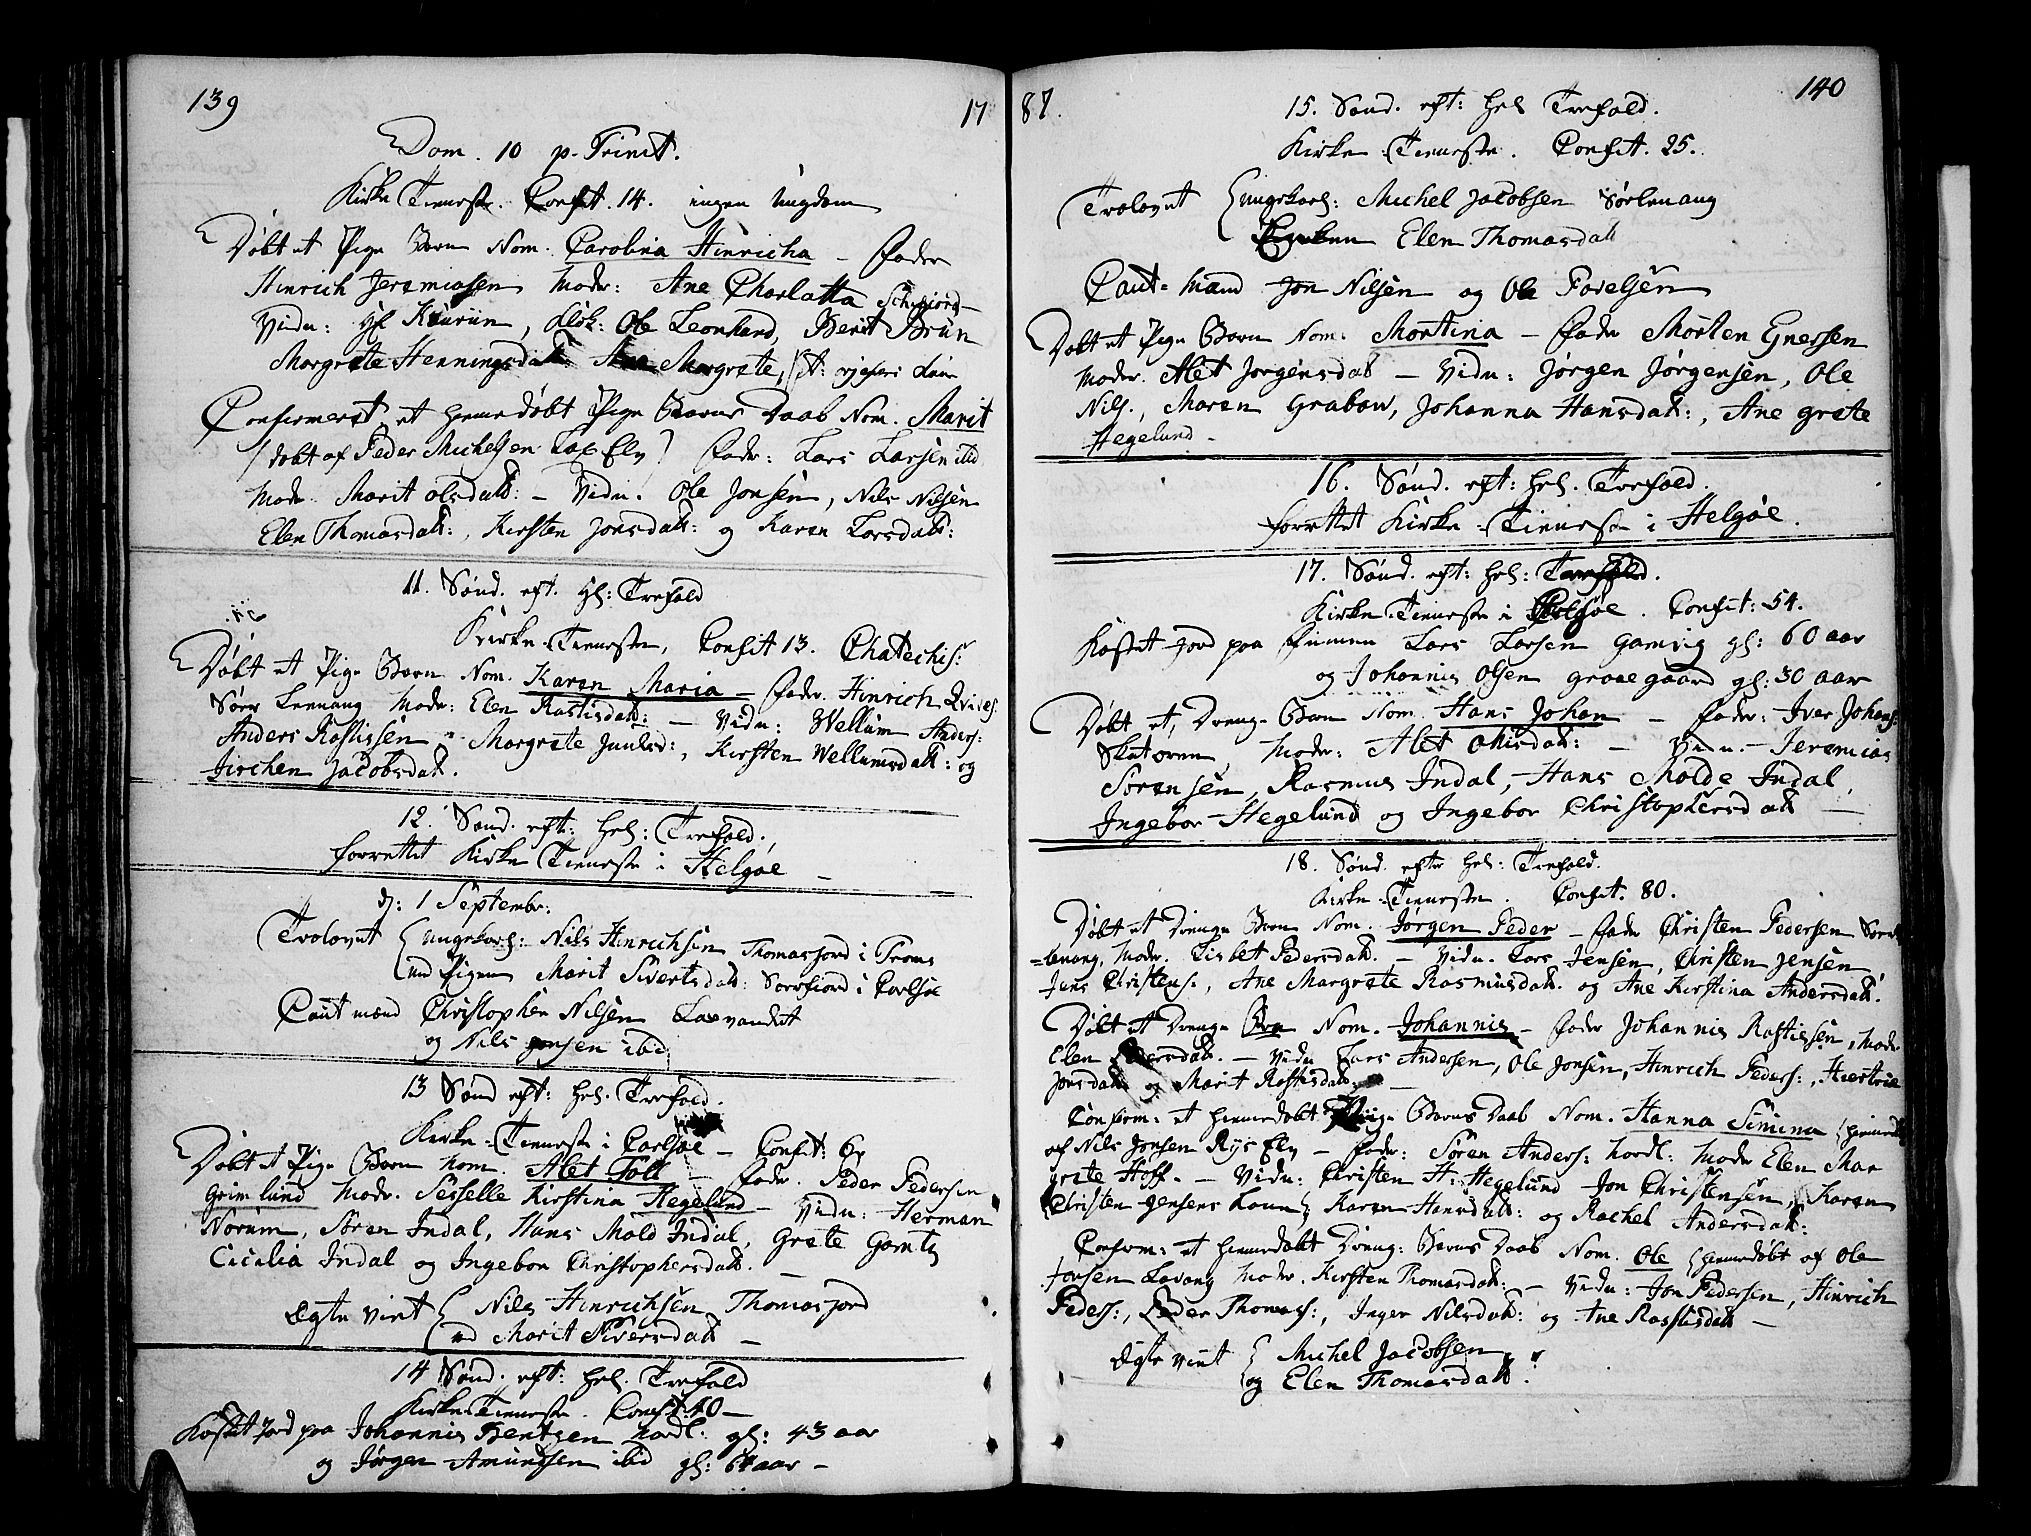 139
17
Dom. 10 p. Trinit.
Kirke Tieneste. Confit. 14. ingen Ungdom
Døbt et Pige Barn Nom. Carolina Hinricha – Fader
Hinrich Jeremiasen Moder: Ane Charlatta
Vidn: Hl , Klok: Ole Leonhard, Berit Brun
Margrete Henningsdatt: Ane Margrete,
Confirmeret et hiemedøbt Pige Barns Daab Nom. Marit
(døbt af Peder Michelsen Lax Elv) Fader: Lars Larsen ibid
Moder. Marit Olsdatt: – Vidn: Ole Jonsen, Nils Nilsen
Elen Thomasdatt:, Kirsten Jonsdatt: og Karen Larsdatt:
11. Sønd. eft. Hl: Trefold
Kirke-Tieneste, Confit 13. Chatechis:
Døbt et Pige Barn Nom. Karen Maria – Fader. Hinrich
Sørr Lennang Moder: Elen Rastisdatt: – Vidn: Wellum Anders:
Anders Rastissen Margrete Juulsd:, Kirsten Wellumsdatt: og
Jirchen Jacobsdatt.
12. Sønd. eft: hel: Trefold.
forrettet Kirke Tieneste i Helgøe –
d: 1 Septembr:
Trolovet Ungekarl: Nils Hinrichsen Thomasjord i Troms
med Pigen Marit Sivertsdatt: Sørfiord i Carlsøe
Caut mænd Christopher Nilsen Laxvandet
og Nils Jonsen ibid:
13 Sønd eft: hel. Trefold.
Kirke-Tieneste i Carlsøe – Confit: 6
Døbt et Pige Barn Nom. Alet Tolt – Fader. Peder Pedersen
Grimlund Moder. Sesselle Kirstina Hegelund – Vidn: Herman
Norum, Søren Indal, Hans Mold Indal, Grete Gamtz
Cicilia Indal og Ingebor Christophersdatt. –
Egte viet Nils Hinrichsen Thomasjord
med Marit Siversdatt –
14 Sønd. eft: hel. Trefold
Kirke Tieneste. Confit: 40 –
Kastet Jord paa Johannis Bentzen Nordl: gl: 43 aar
og Jørgen Amundsen ibid gl: 61 aar –
87.
140
15. Sønd. eft: hel Trefold.
Kirke-Tieneste. Confit. 25.
Trolovet Ungekarl: Michel Jacobsen Sørlenang
Elen Thomasdatt
Caut-Mænd Jon Nilsen og Ole Povelsen
Døbt et Pige Barn Nom: Martina – Fader Morten Gnersen
Moder. Alet Jørgensdatt – Vidn: Jørgen Jørgensen, Ole
Nils., Maren Grabow, Johanna Hansdatt:, Ane grete
Hegelund –
16. Sønd. eft: hel. Trefold.
forrettet Kirke-Tieneste i Helgøe.
17. Sønd. eft: hel: Trefold.
Kirke-Tieneste i Carlsøe. Confit: 54.
Kastet Jord paa Finnen Lars Larsen Gamvig gl: 60 aar
og Johannis Olsen graaegaard gl: 30 aar
Døbt et Drenge Barn Nom. Hans Johan – Fader: Iver Johans:
Skatøren, Moder: Alet Olisdatt: – Vidn: – Jeremias
Sørensen, Rasmus Indal, Hans Molde Indal,
Ingebor Hegelund og Ingebor Christophersdatt –
18. Sønd. efter hel: Trefold.
Kirke-Tieneste. Confit. 80.
Døbt et Drenge Barn Nom. Jørgen Peder – Fader Christen Pedersen Sørr
=lenang, Moder. Lisbet Pedersdatt. – Vidn. Lars Jensen, Christen Jensen
Jens Christens:, Ane Margrete Rasmusdatt. og Ane Kirstina Andersdatt.
Døbt et Drenge Barn Nom. Johannis – Fader Johannis Rastissen, Moder
Elen Persdatt. – Vidn Lars Andersen, Ole Jonsen, Hinrich Peders:,
Jonsdatt og Marit Rastisdatt: –
Confirm: et hiemedøbt Pige Barns Daab Nom. Hanna Simina (hiemedøbt
af Nils Jonsen Rys Elv – Fader: Søren Anders: Nordl: Moder Elen Mar
grete Hoff. – Vidn: Christen H. Hegelund Jon Christensen, Karen
Christen Jensens Kone, Karen Hansdatt: og Rachel Andersdatt:
Confirm: et hiemedøbt Dreng: Barns Daab Nom. Ole (hiemedøbt af Ole
Jonsen Lavang Moder. Kirsten Thomasdatt: – Vidn: Jon Pedersen, Hinrich
Peders:, Peder Thomas:, Inger Nilsdatt: og Ane Rastisdatt –
Egte viet Michel Jacobsen
og Elen Thomasdatt: